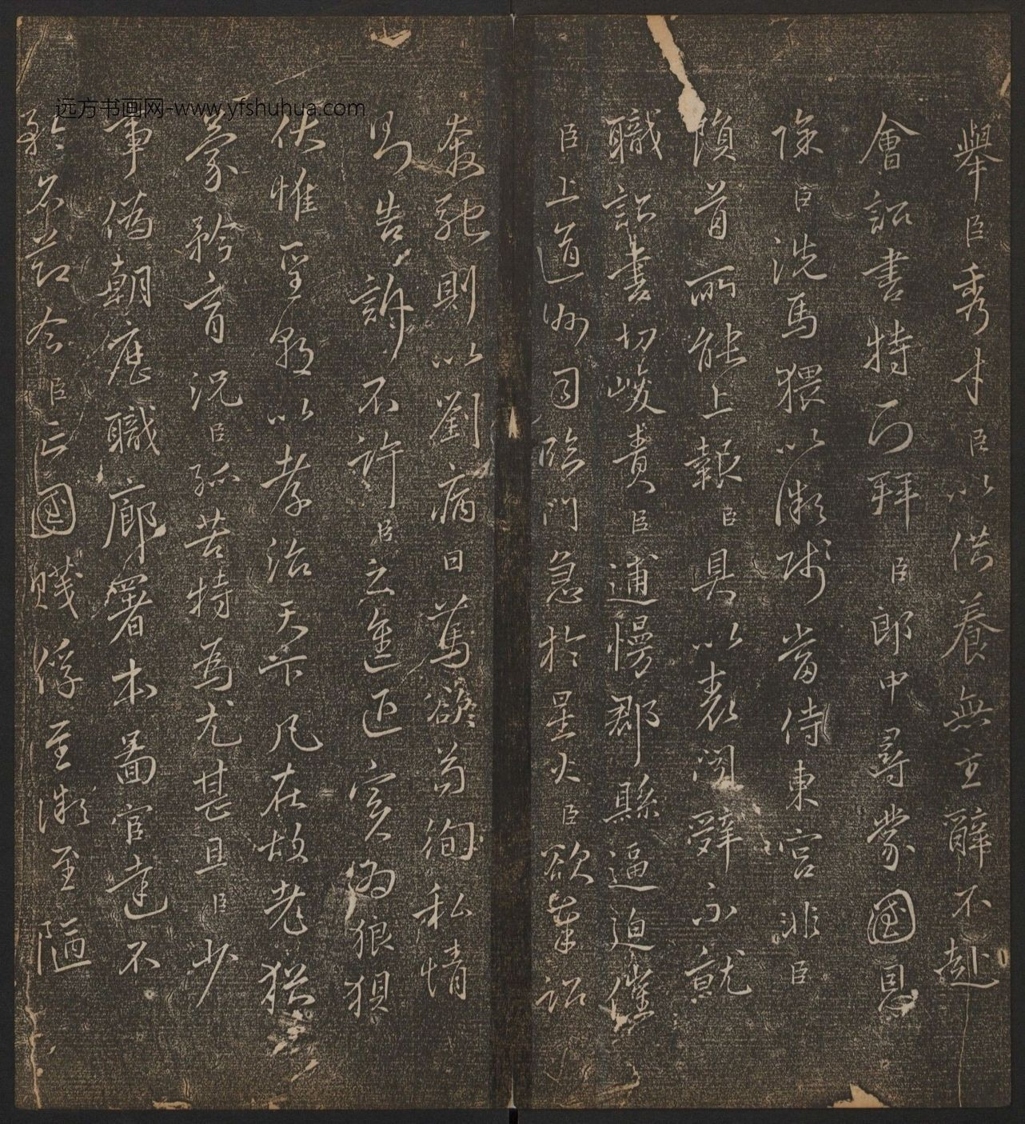 远方书画网-www.yfshuhua.com
舉臣秀才臣以供養無主辭不赴
會詔書特下拜臣郎中尋蒙國恩
除臣洗馬猥以微賤當侍東宮非臣
隕首所能上報臣具以表聞辭不就
職詔書切峻責臣逋慢郡縣逼迫催
臣上道州司臨門急於星火臣欲奉詔
奔馳則以劉病日篤欲苟徇私情
則告訴不許臣之進退實為狼狽
伏惟聖朝以孝治天下凡在故老猶
蒙矜育況臣孤苦特為尤甚且臣少
事偽朝歷職廊署本圖宦達不
矜名節今臣亡國賤俘至微至陋